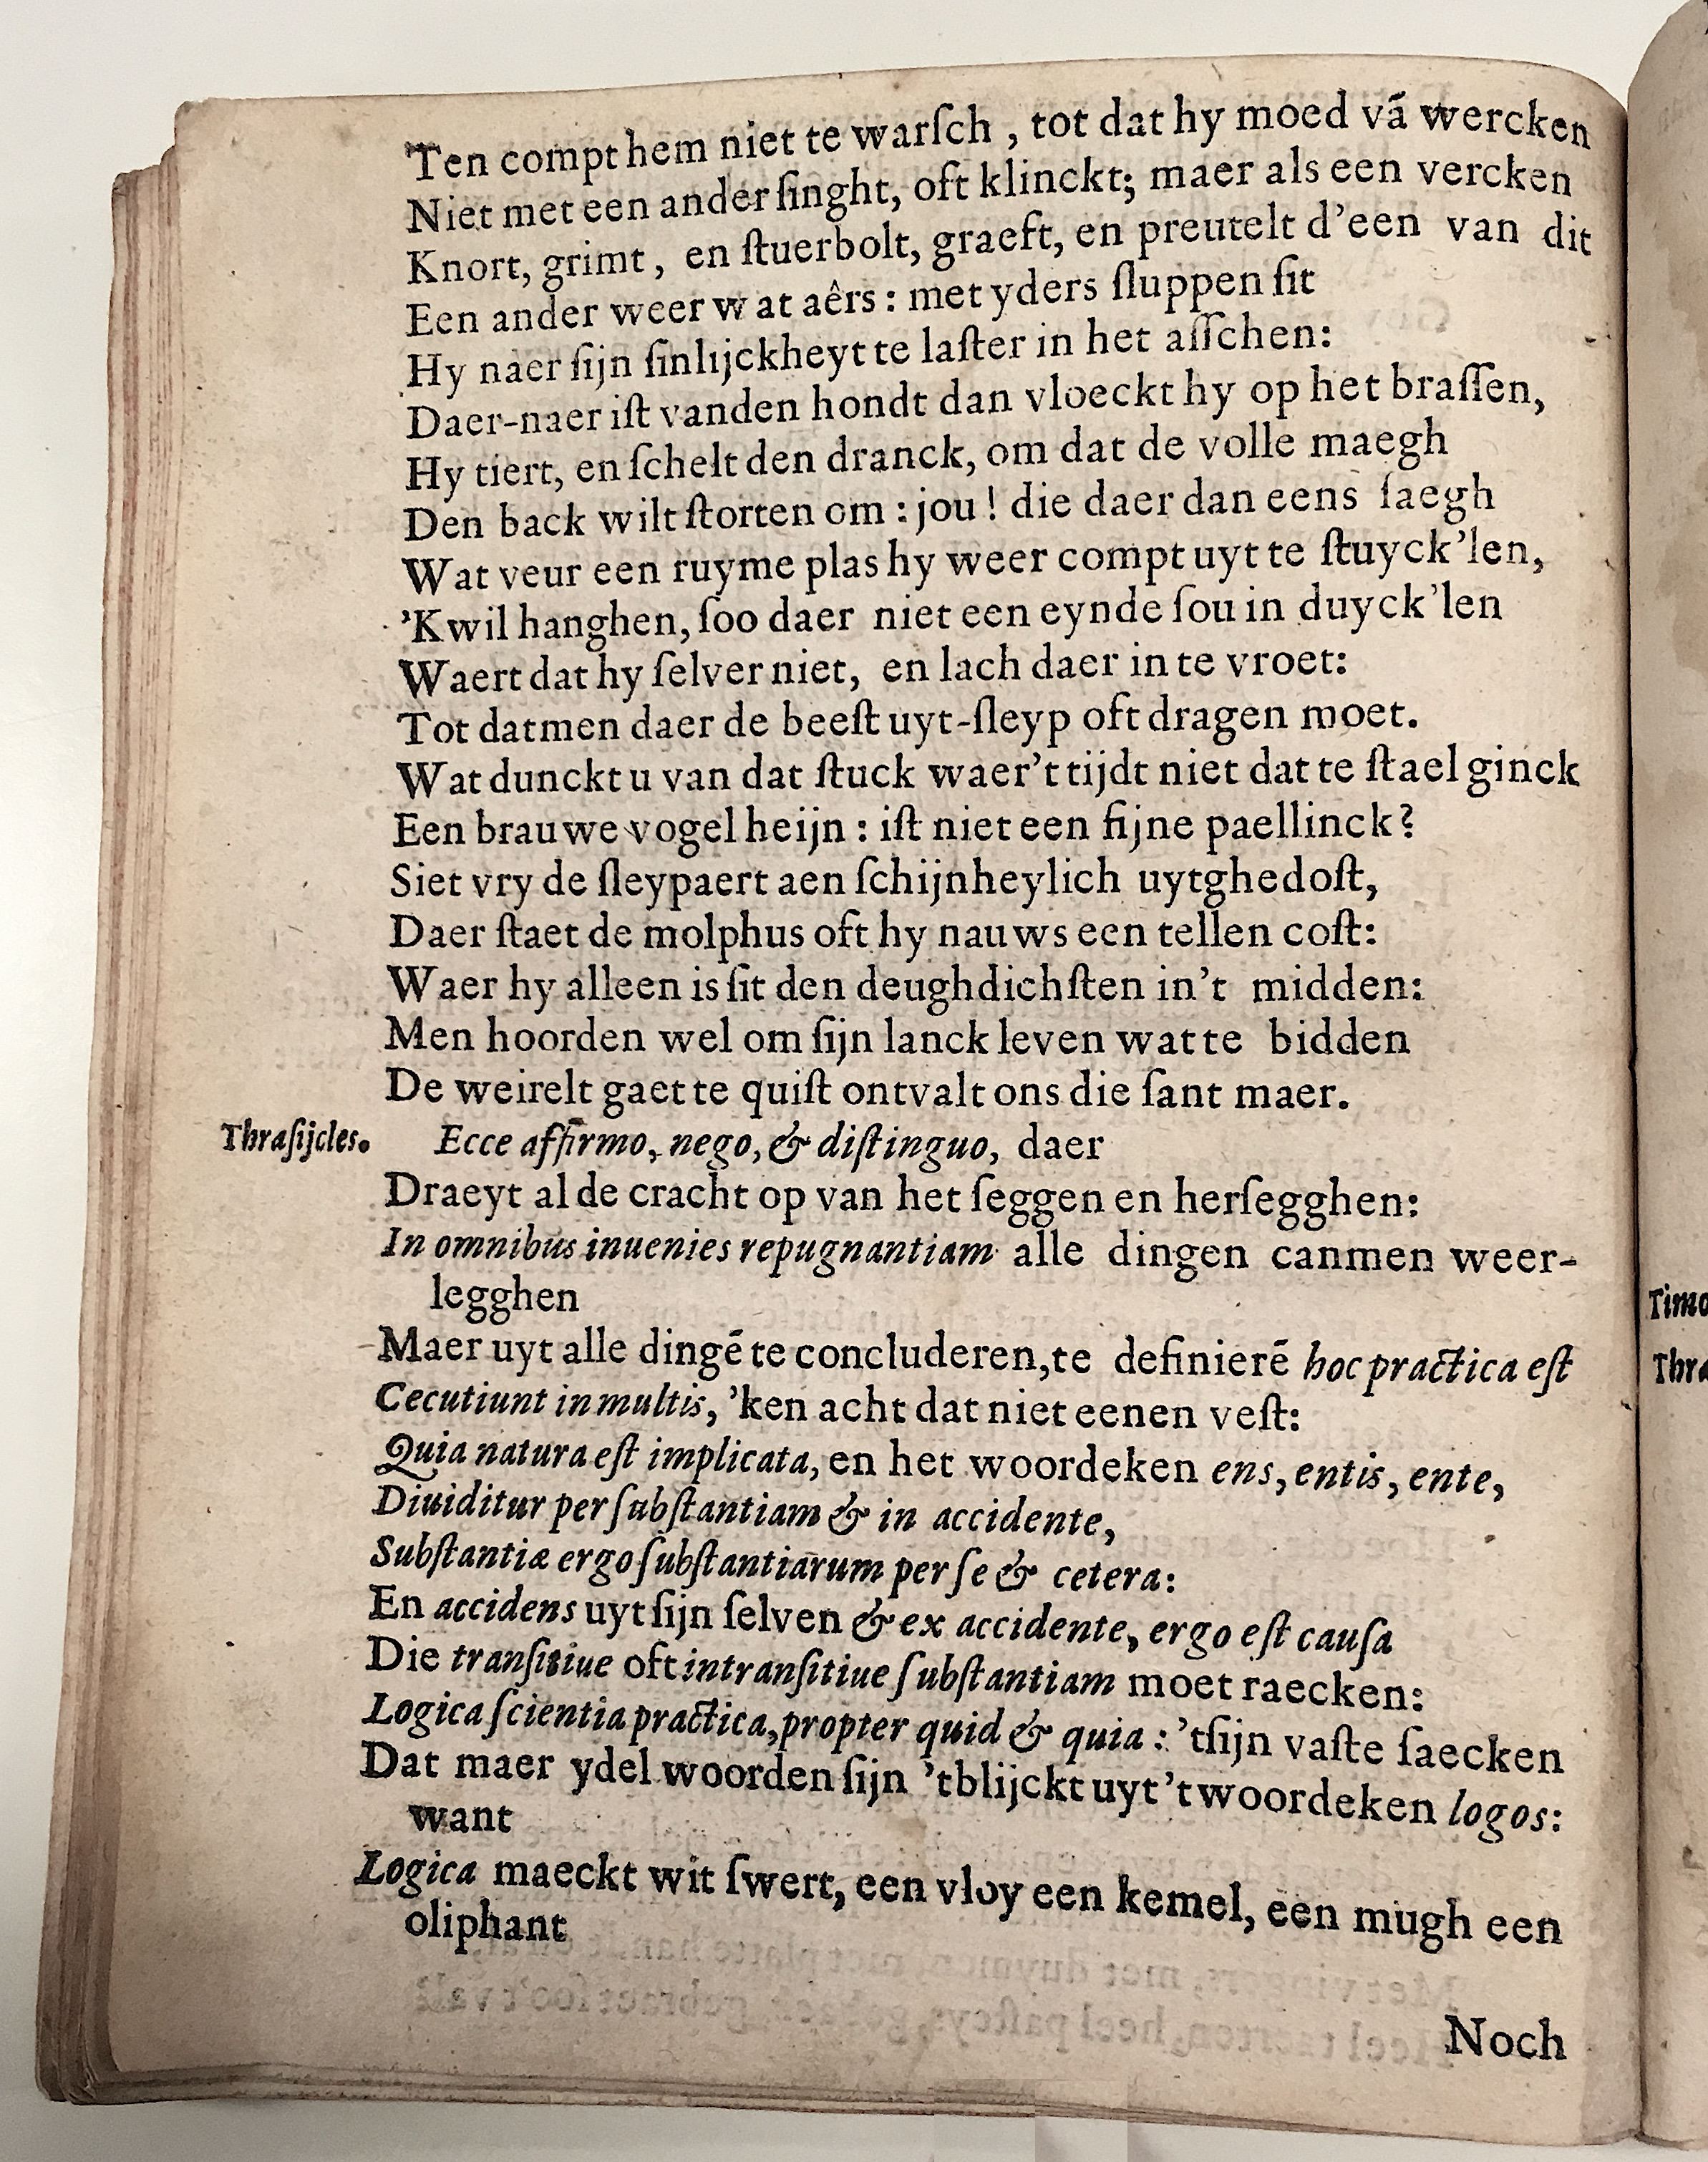 'Ten compt hem niet te warſch , tot dat hy moed vã wercken
Niet met een ander ſinght, oft klinckt; maer als een vercken
Knort, grimt , en ſtuerbolt, graeft, en preutelt d'een van dit
Een ander weer wat aêrs : met yders ſluppen ſit
Hy naer ſijn ſinlijckheyt te laſter in het aſſchen:
Daer-naer iſt vanden hondt dan vloeckt hy op het braſſen,
Hy tiert, en ſchelt den dranck, om dat de volle maegh
Den back wilt ſtorten om : jou ! die daer dan eens ſaegh
Wat veur een ruyme plas hy weer compt uyt te ſtuyck'len,
'Kwil hanghen, ſoo daer niet een eynde ſou in duyck'len
Waert dat hy ſelver niet, en lach daer in te vroet:
Tot datmen daer de beeſt uyt-ſleyp oft dragen moet.
Wat dunckt u van dat ſtuck waer't tijdt niet dat te ſtael ginck
Een brauwe vogel heijn : iſt niet een fijne paellinck?
Siet vry de ſleypaert aen ſchijnheylich uytghedoſt,
Daer ſtaet de molphus oft hy nauws een tellen coſt:
Waer hy alleen is ſit den deughdichſten in't midden:
Men hoorden wel om ſijn lanck leven wat te bidden
De weirelt gaet te quiſt ontvalt ons die ſant maer.
Thraſijcles. Ecce affirmo, nego, & diſtinguo, daer
Draeyt al de cracht op van het ſeggen en herſegghen:
In omnibus inuenies repugnantiam alle dingen canmen weer-
legghen
Maer uyt alle dingẽ te concluderen, te definierẽ hoc practica eſt
Cecutiunt in multis, 'ken acht dat niet eenen veſt:
Quia natura eſt implicata, en het woordeken ens, entis, ente,
Diuiditur per ſubſtantiam & in accidente,
Subſtantiæ ergo ſubſtantiarum per ſe & cetera:
En accidens uyt ſijn ſelven & ex accidente, ergo eſt cauſa
Die tranſitiue oft intranſitiue ſubſtantiam moet raecken:
Logica ſcientia practica, propter quid & quia : 'tſijn vaſte ſaecken
Dat maer ydel woorden ſijn 'tblijckt uyt 't woordeken logos:
want
Logica maeckt wit ſwert, een vloy een kemel, een mugh een
oliphant
Noch
Timo
Thra